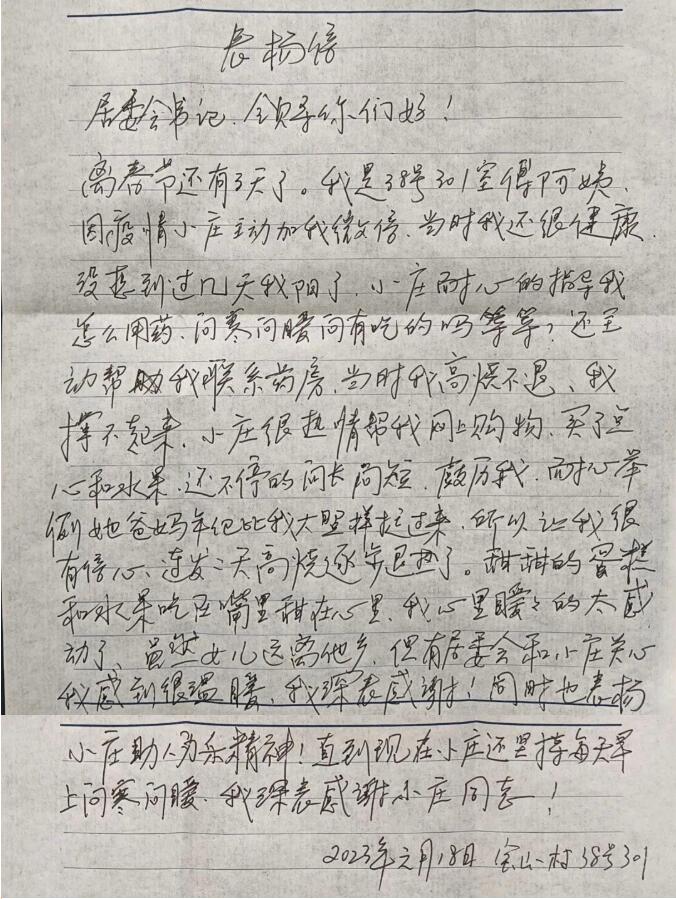 表扬信
居委会书记、领导你们好！
离春节还有3天了。我是38号301室傅阿姨、
因疫情小庄主动加我微信、当时我还很健康、
没想到过几天我阳了、小庄耐心的指导我
怎么用药、问寒问暖问有吃的吗等等，还主
动帮助我联系药房、当时我高烧不退、我
撑不起来、小庄很热情帮我网上购物、买了点
心和水果、还不停的问长问短、鼓历我、耐心举
例她爸妈年纪比我大坚持起过来、所以让我很
有信心、连发二天高烧逐步退热了。甜甜的蛋糕
和水果吃在嘴里甜在心里、我心里暖暖的太感
动了、虽然女儿远离他乡、但有居委会和小庄关心
我感到很温暖、我深表感谢！同时也表扬
小庄助人为乐精神！直到现在小庄还坚持每天早
上问寒问暖、我深表感谢小庄同志！
2023年元月18日 宝山一村38号301